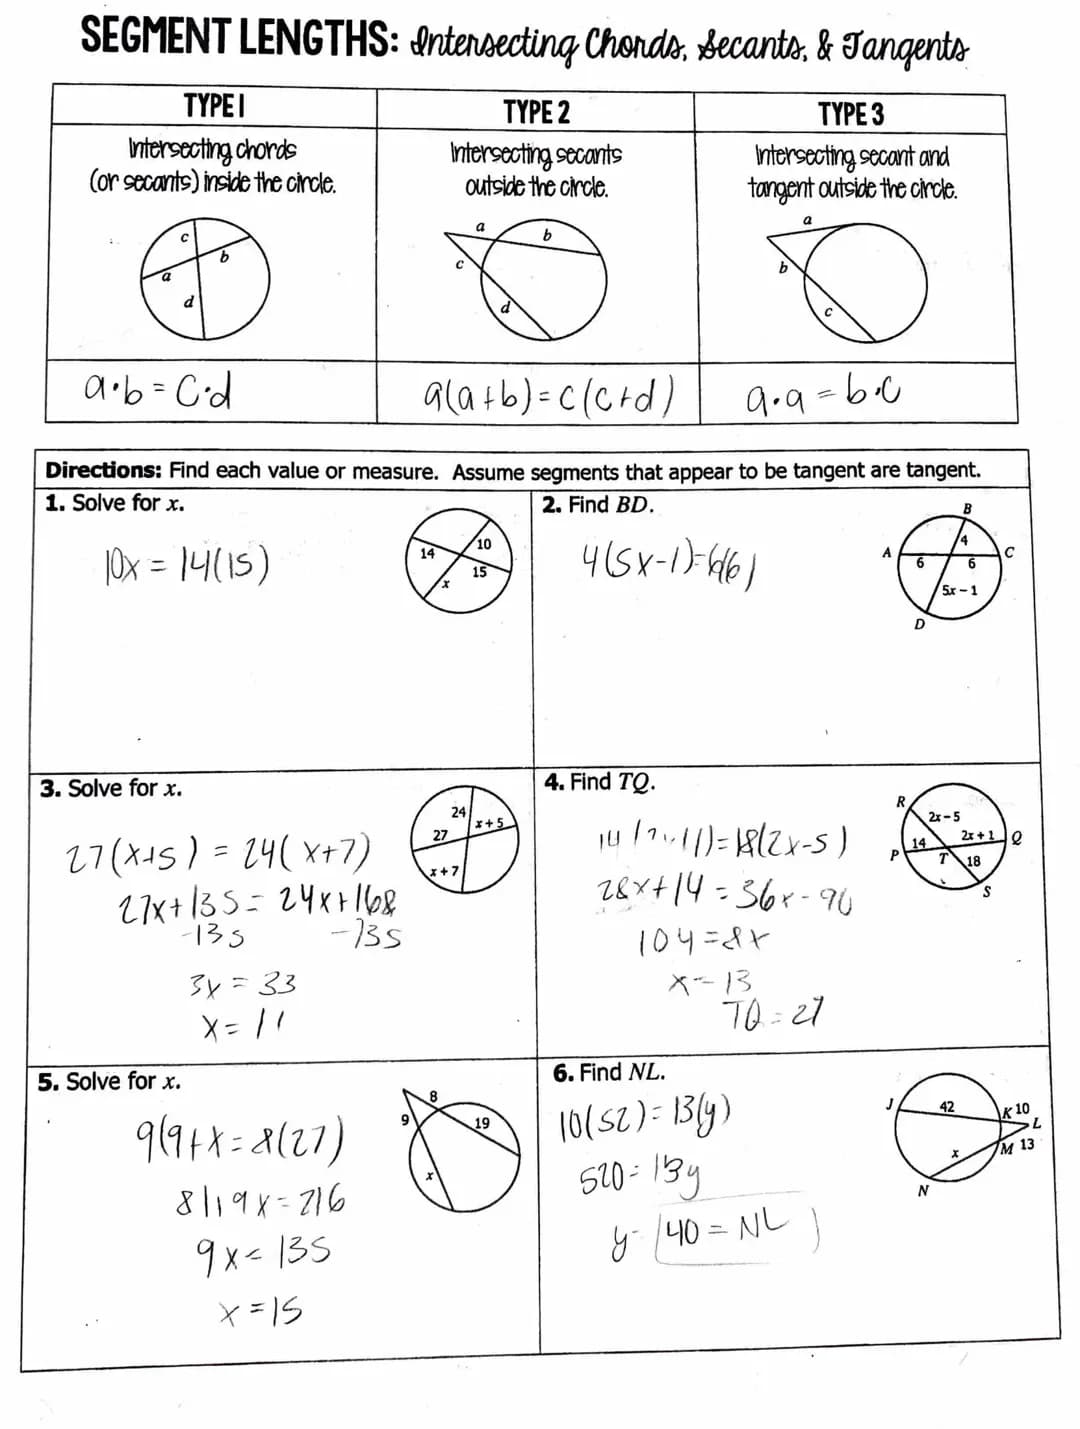 SEGMENT LENGTHS: Intersecting Chords, Secants, & Tangents
TYPE 1
TYPE 2
TYPE 3
Intersecting chords
(or secants) inside the circle.
Intersecting secants
outside the circle.
Intersecting secant and
tangent outside the circle.
c
b
a
d
a
b
c
d
a
b
c
a·b = c·d
a(a+b)=c(c+d)
a·a = b·c
Directions: Find each value or measure. Assume segments that appear to be tangent are tangent.
1. Solve for x.
10x = 14(15)
14
10
15
x
2. Find BD.
4(5x-1)=6(6)
B
A
4
C
6
6
5x – 1
D
3. Solve for x.
27(x+5) = 24(x+7)
27x+135 = 24x+168
-135 -135
3x = 33
x = 11
24
x + 5
27
x + 7
4. Find TQ.
)=18(2x-5)
28x+14 = 36x-90
104=8x
x=13
TQ=27
R
2x – 5
2x + 1
Q
14
P
T
18
S
5. Solve for x.
9(9+x=8(27)
81+9x=216
9x=135
x=15
8
9
19
x
6. Find NL.
10(52)=13(y)
520=13y
y= 40 = NL
J
42
K 10
L
M 13
x
N